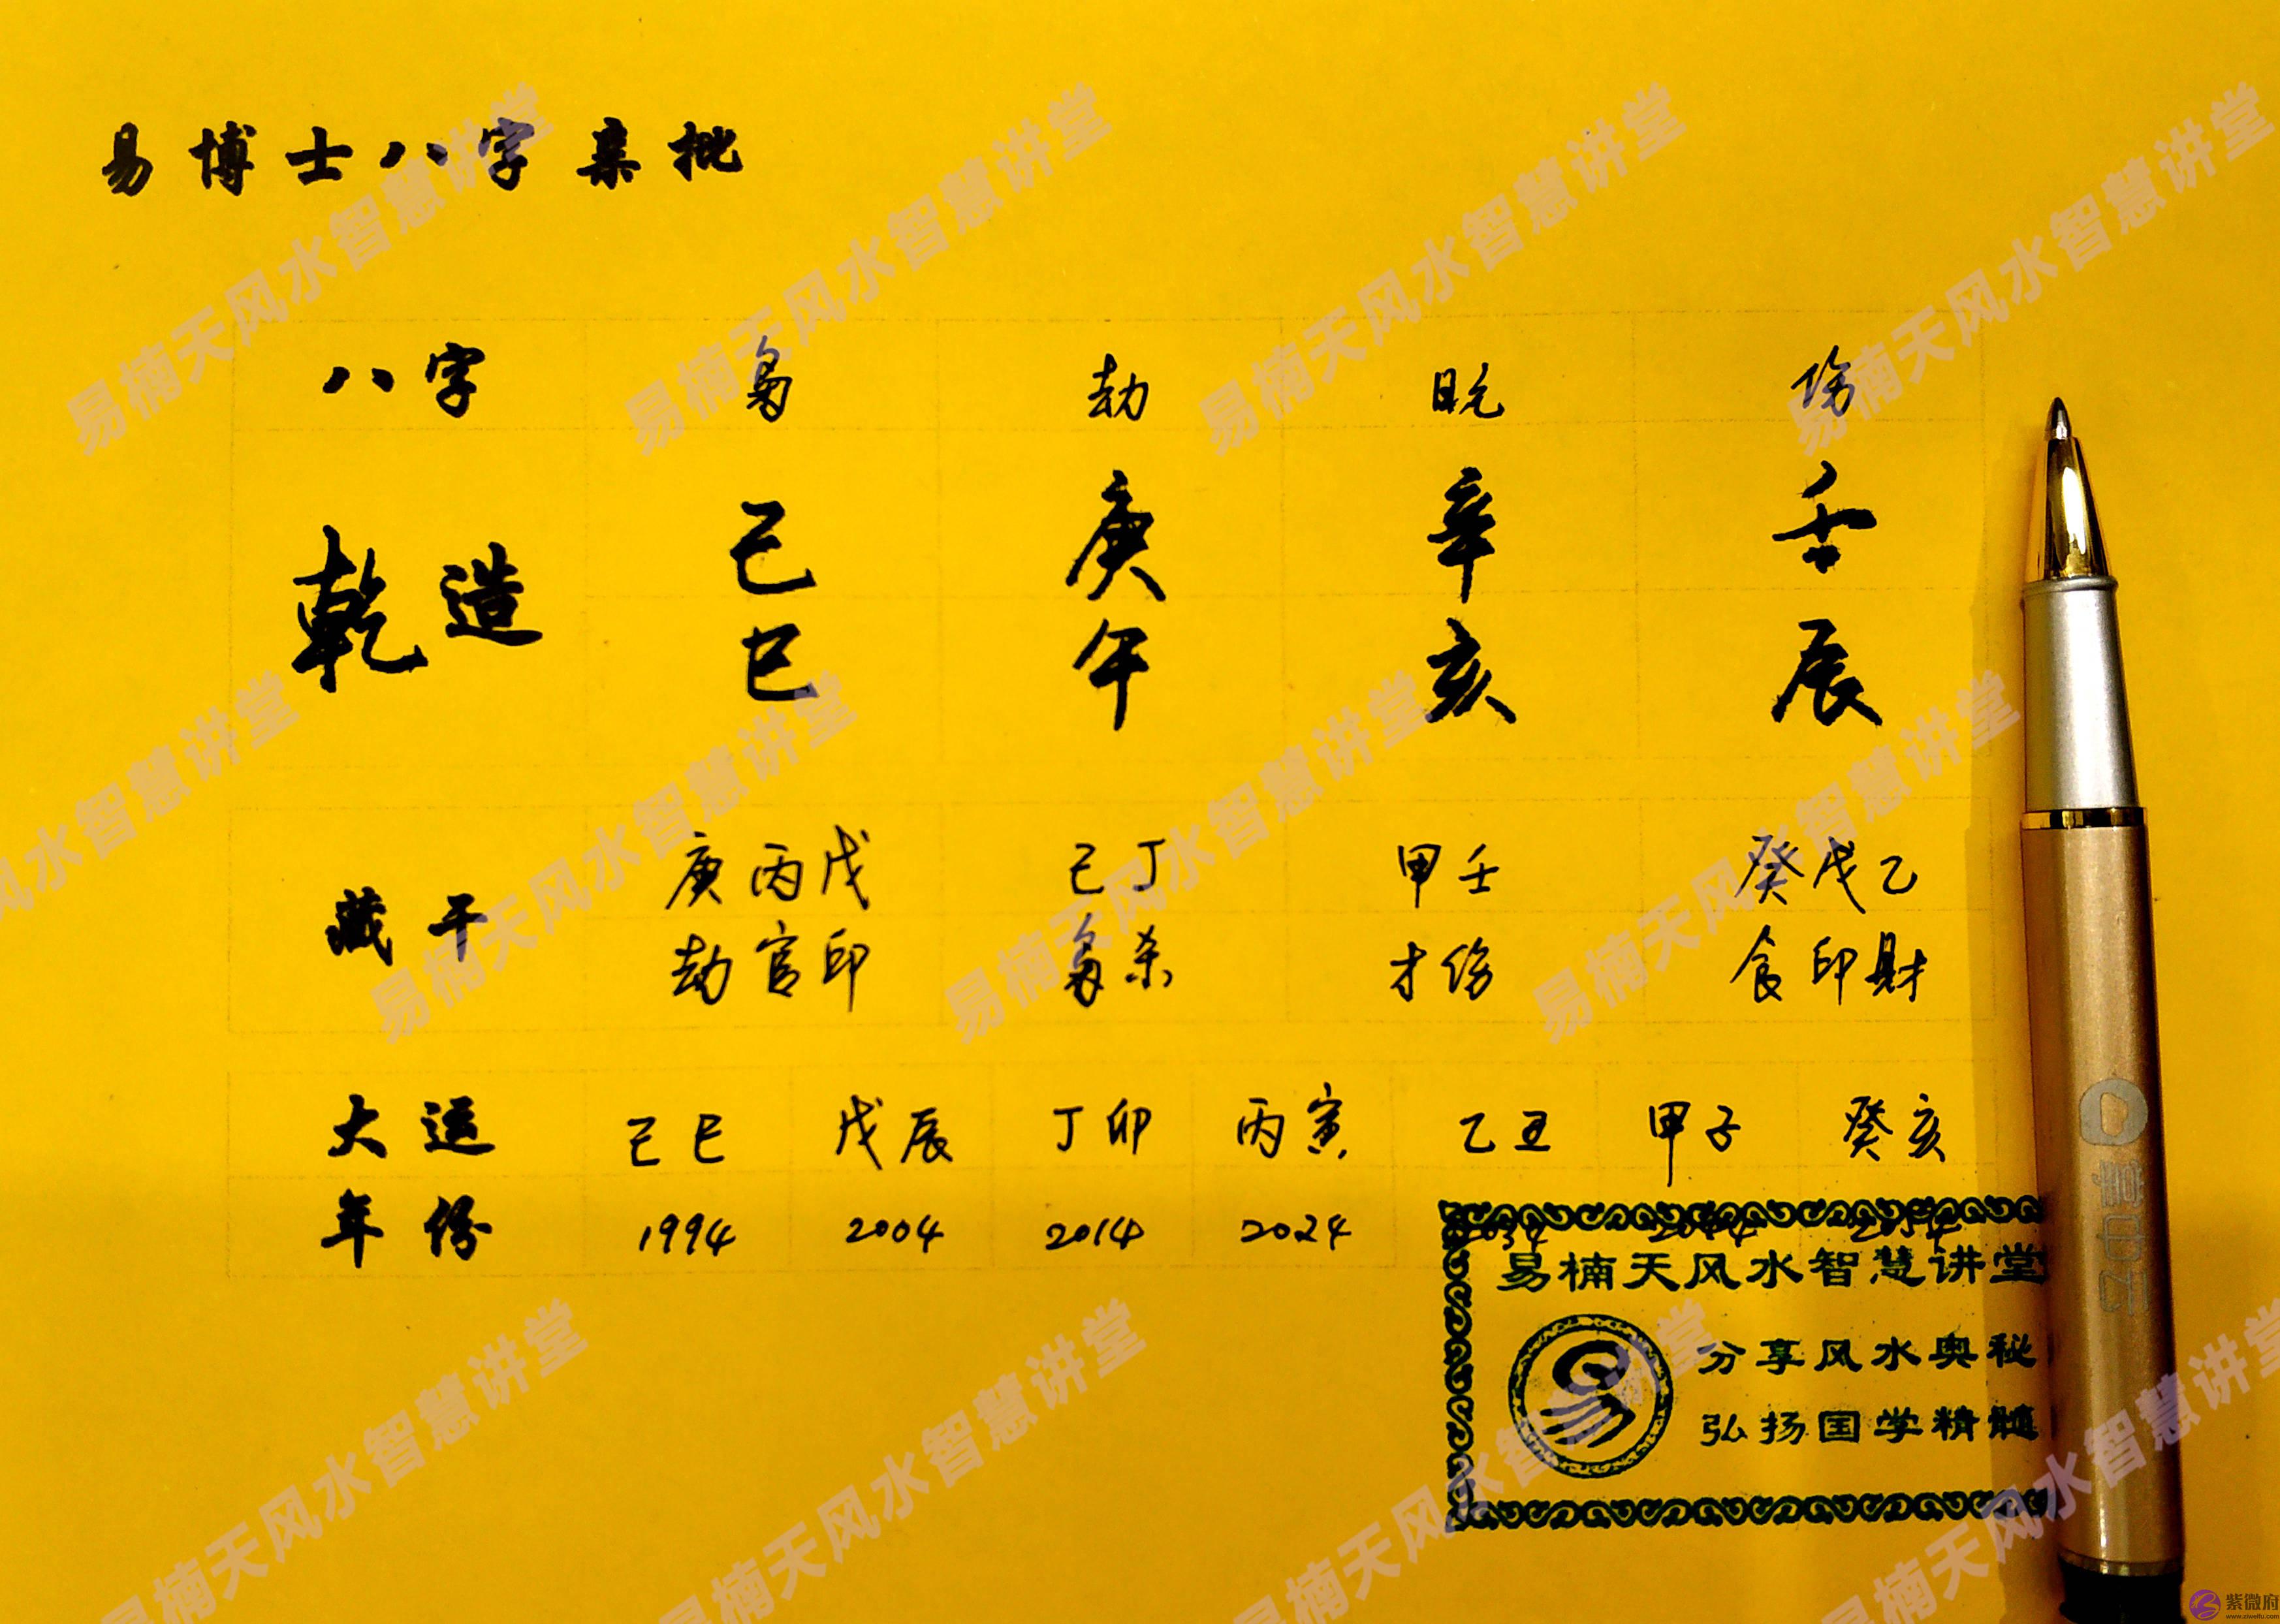 易博士八字亲批
八字 枭 劫 日元 伤
乾造 己 庚 辛 壬
巳 午 亥 辰
藏干 庚丙戊 己丁 甲壬 癸戊乙
劫官印 枭杀 才伤 食印財
大运 己巳 戊辰 丁卯 丙寅 乙丑 甲子 癸亥
年份 1994 2004 2014 2024 2034 2044 2054
易楠天风水智慧讲堂
分享风水奥秘
弘扬国学精髓
易楠天风水智慧讲堂
紫微府
www.ziweifu.com